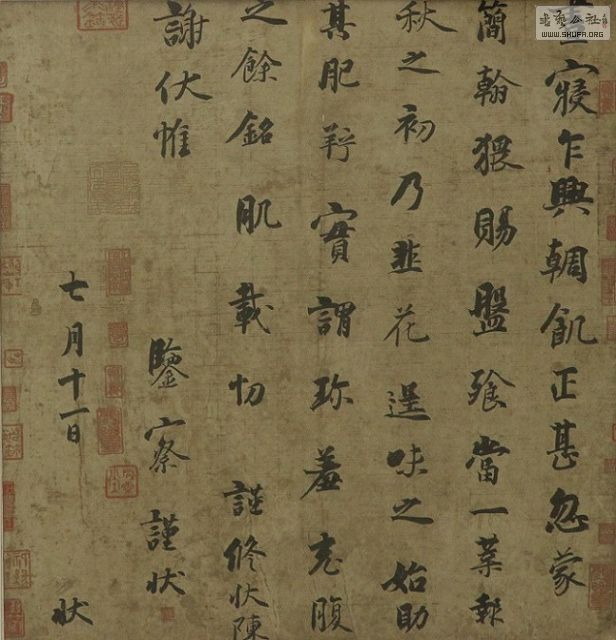 晝寢乍興輖飢正甚忽蒙
簡翰猥賜盤飧當一葉報
秋之初乃韭花逞味之始助
其肥羜實謂珍羞充腹
之餘銘肌載切謹修狀陳
謝伏惟
鑒察謹狀
七月十一日
狀
WWW.SHUFA.ORG